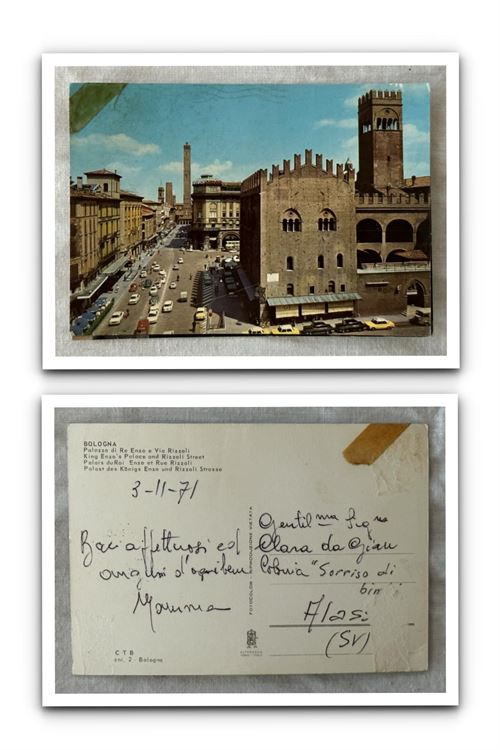 BOLOGNA
Palazzo di Re Enzo e Via Rizzoli
King Enzo's Palace and Rizzoli Street
Palais du Roi Enzo et Rue Rizzoli
Palast des Königs Enzo und Rizzoli Strasse
3-11-71
Baci affettuosi ed
auguri d'ogni bene
Mamma
CTB
ani, 2 - Bologna
FOTOCOLOR - RIPRODUZIONE VIETATA
Gentil ma Sig na
Clara da Gian
Colonia "Sorriso di
bim
Alas
(SV)